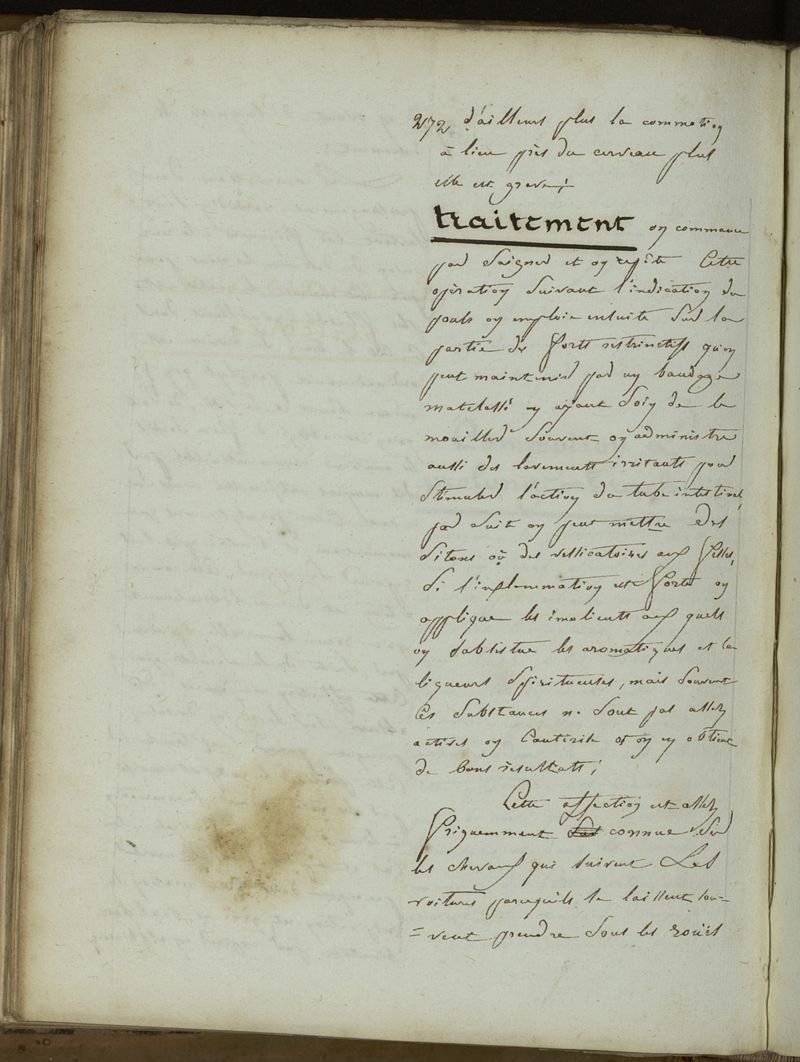 272 d'ailleurs plus la commotion
à lieu près du cerveau plus
elle est grave;
traitement on commance
par Saigner et on repète Cette
opération Suivant l'indication du
pouls on emploie ensuite Sur la
partie des forts restrinctifs qu'on
peut maintenir par un bandage
matelassé en ayant Soin de le
moailler Souvent on administre
aussi des lavements irritants pour
Stimuler l'action du tube intestinal,
par Suite on peut mettre des
Sitons où des vessicatoires aux fesses,
Si l'inflammation est forte on
applique les imolients aux quels
on Substitue les aromatiques et la
liqueurs Spiritueuses, mais Souvent
Ces Substances ne Sont pas assez
actives on Cautérise et on en obtient
de bons résultats;
Cette affection est assez
friquemment connue Sur
les chevaux qui suivent Les
voitures parcequ'ils se laissent sou=
=vent prendre Sous les rouës